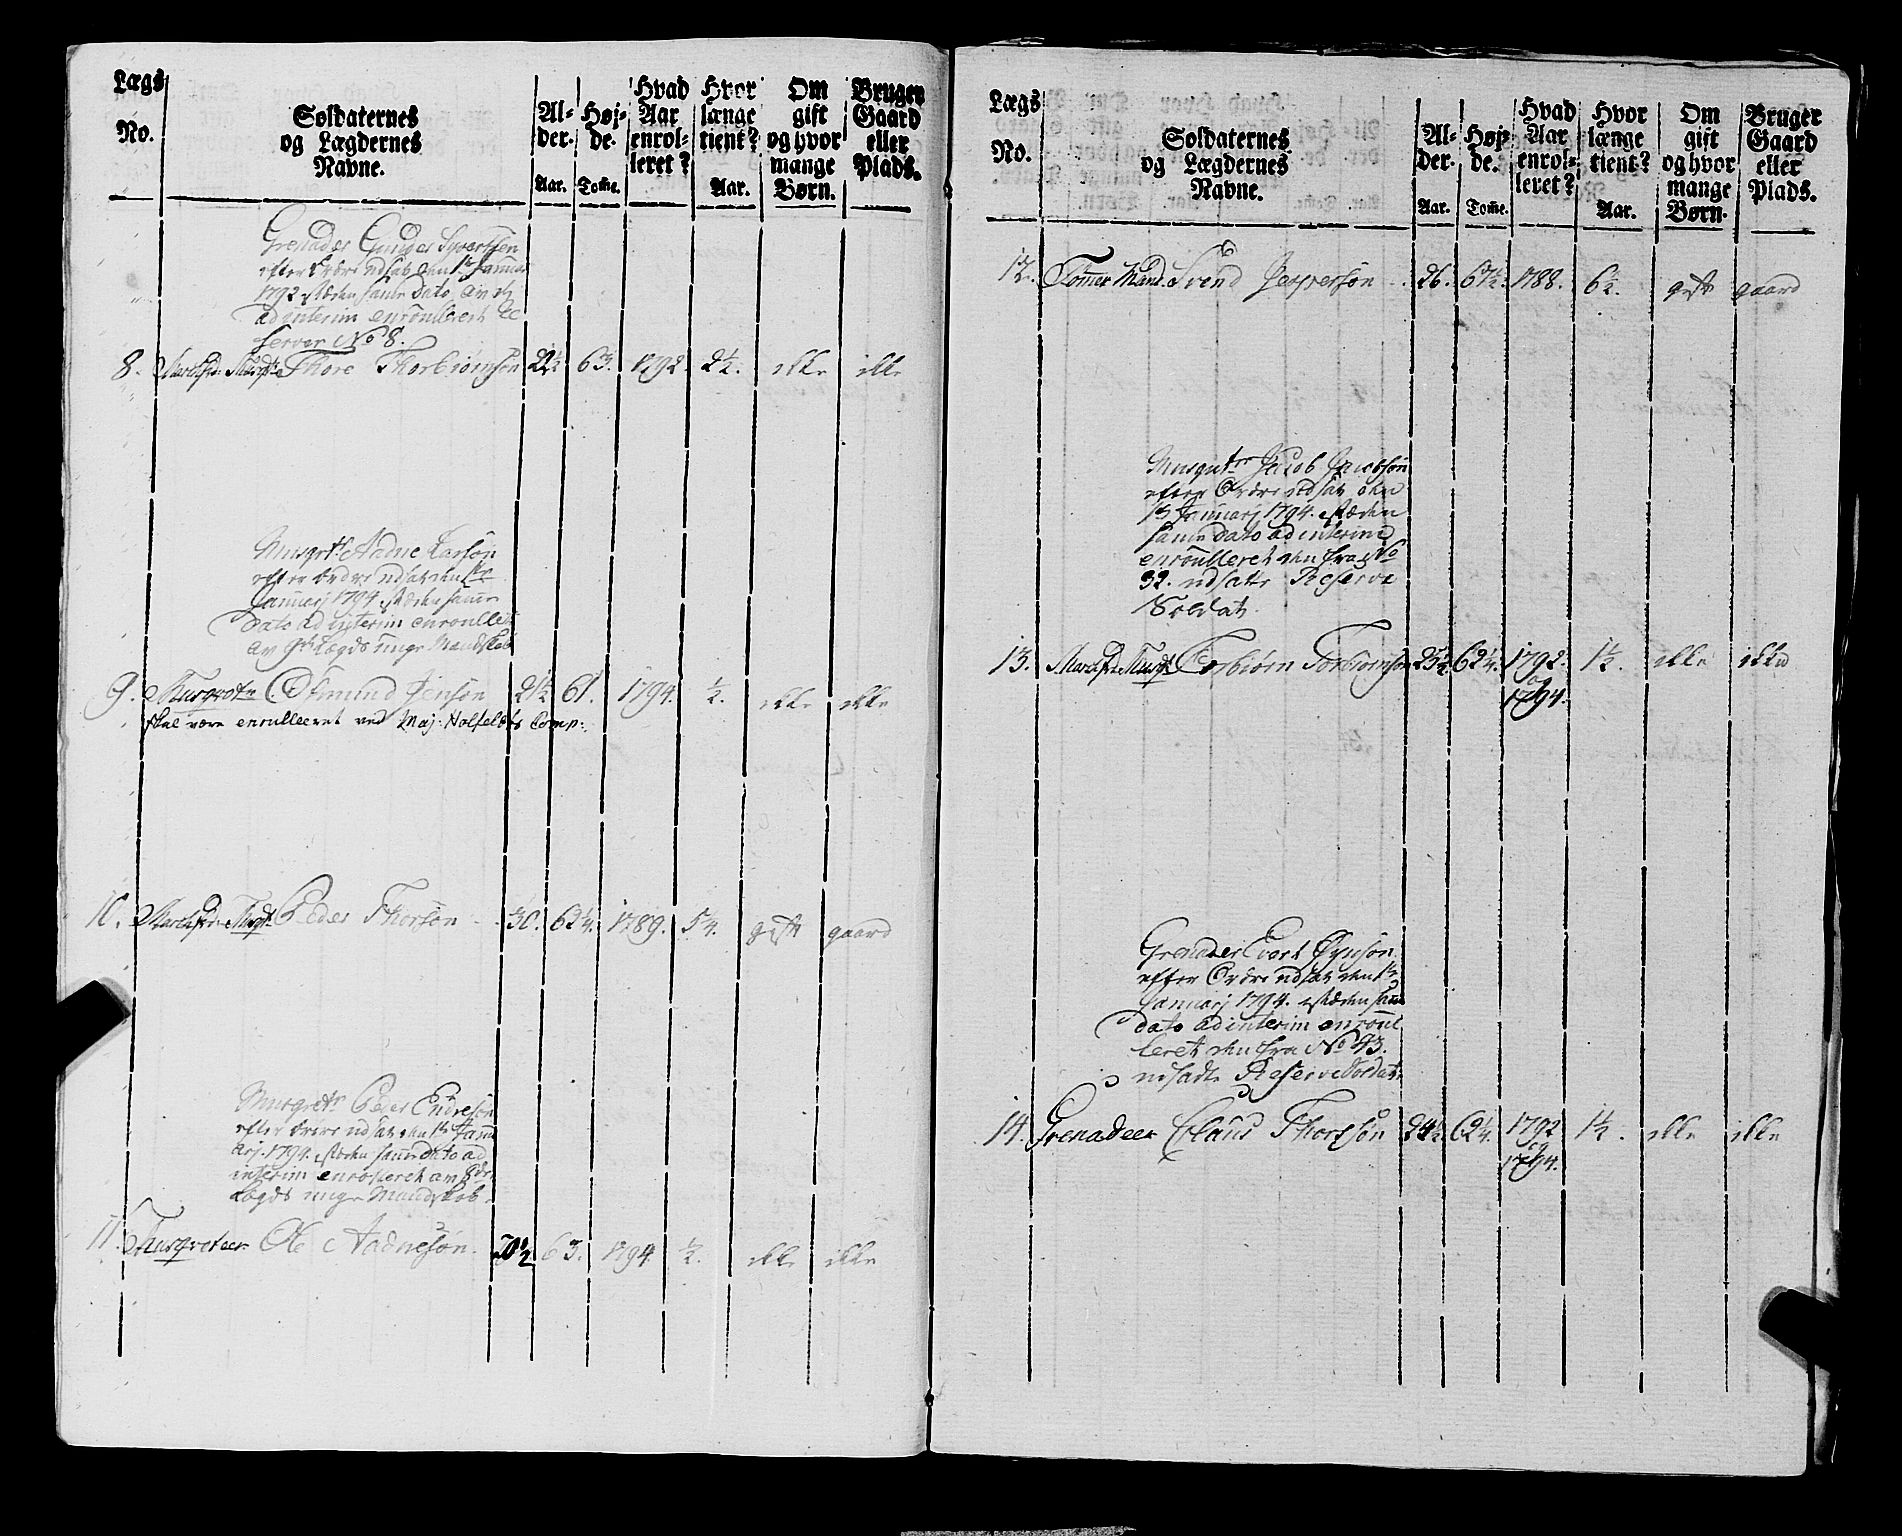 Lægs No.
Soldaternes og Lægdernes Navne.
Al-der. Aar.
Høj-de. Tome.
Hvad Aar enrol-leret?
Hvor længe tient? Aar.
Om gift og hvor mange Børn.
Bruger Gaard eller Plads.
Grenader Gunder Syversen
efter Ordre udsat den 1te Januar
1792 i Stæden samme dato
ad interim enroulleret Re
server No 8.
8. Thore Thorbiørnsön 63. 1792 2½. ikke ikke
Musqtr. Aadne Larsön
efter Ordre udsat den 1te
Januarj 1794 i Stæden samme
Dato ad interim enroulleret
av 9de Lægds unge Mandskab
9. Musqvetr Jensön 21½ 61. 1794. ½. ikke ikke
skal være enrulleret ved Maj: Holfeldts Comp:
10. Peder Thorsön 30. 62¼. 1789. 5¼. gift gaard
Musqvetr Peder Endresön
efter Ordre udsat den 1te Janu
arj. 1794. i Stæden samme Dato ad
interim enrolleret av
Lægds unge Mandskob.
11. Musqveteer Ole Aadnesön 20½ 63. 1794 ½. ikke ikke
Lægs No.
Soldaternes og Lægdernes Navne.
Al-der. Aar.
Høj-de. Tome.
Hvad Aar enrol-leret?
Hvor længe tient? Aar.
Om gift og hvor mange Børn.
Bruger Gaard eller Plads.
12. Tömmer Mand. Svend Jespersön 26. 67½. 1788. 6½. gift gaard
Musqvetr Jacob Jacobsön
efter Ordre udsat den
1te Januarj 1794. i Stæden
samme Dato ad interim
enroulleret den fra No
32. udsatte Reserve
Soldat.
13. Torbiörn Torbiörnsön 25½. 62¼. 1792. og 1794. 1½. ikke ikke
Grenader
efter Ordre udsat den 1te
Januarj 1794. i Stæden samme
dato ad interim enroul
leret den fra No 43.
udsadte Reserve Soldat.
14. Grenadeer Claus Thorsön 24½ 62¼. 1792 og 1794. 1½. ikke ikke